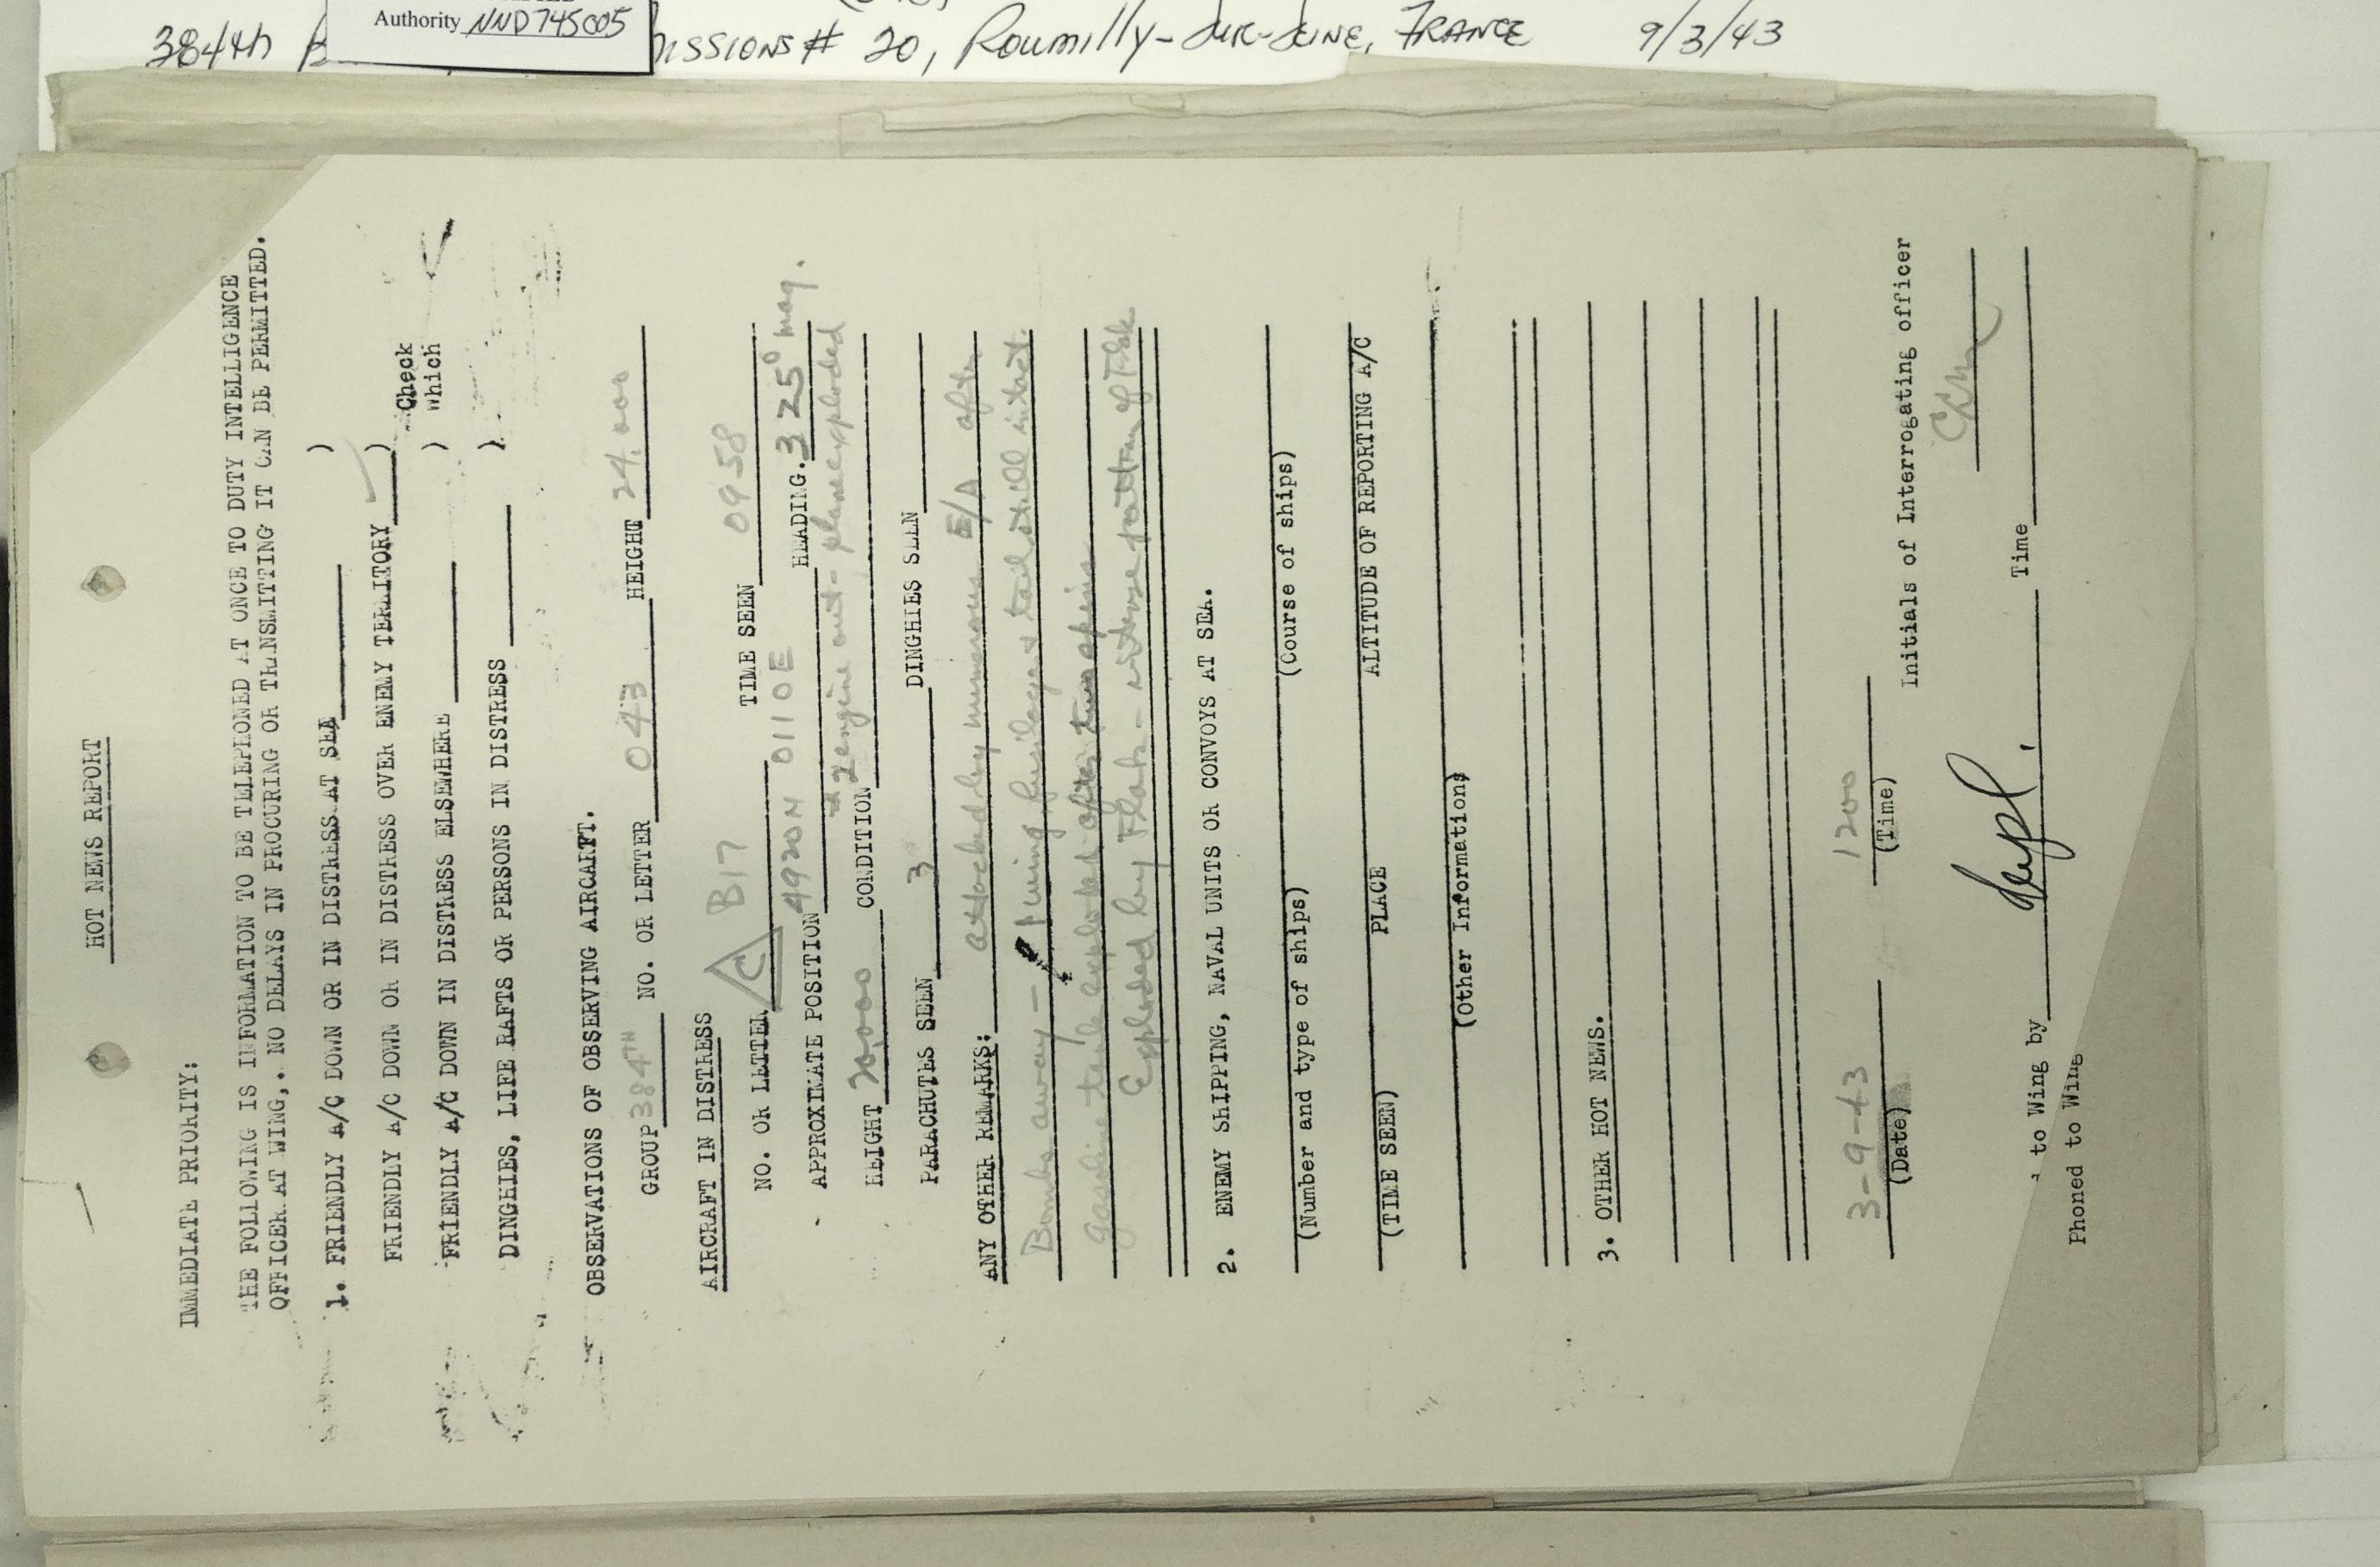 Authority NND745005
384th B ISSIONS # 20, Roumilly-Sur-Seine, FRANCE 9/3/43
HOT NEWS REPORT
IMMEDIATE PRIORITY:
THE FOLLOWING IS INFORMATION TO BE TELEPHONED AT ONCE TO DUTY INTELLIGENCE
OFFICER AT WING,. NO DELAYS IN PROCURING OR TRANSMITTING IT CAN BE PERMITTED.
1. FRIENDLY A/C DOWN OR IN DISTRESS AT SEA )
FRIENDLY A/C DOWN OR IN DISTRESS OVER ENEMY TERRITORY ) Check
FRIENDLY A/C DOWN IN DISTRESS ELSEWHERE ) which
DINGHIES, LIFE RAFTS OR PERSONS IN DISTRESS )
OBSERVATIONS OF OBSERVING AIRCARFT.
GROUP 384TH NO. OR LETTER 043 HEIGHT 24,000
AIRCRAFT IN DISTRESS
NO. OR LETTER C B17 TIME SEEN 0958
APPROXIMATE POSITION 4920N 0110E HEADING. 325° mag.
HEIGHT 20,000 CONDITION 2 engine out - plane exploded
PARACHUTES SEEN 3 DINGHIES SEEN
ANY OTHER REMARKS: attacked by numerous E/A after
Bombs away - firing fuselage & tail still intact.
Gasoline tank exploded after
Exploded by Flak - intense pattern of Flak
2. ENEMY SHIPPING, NAVAL UNITS OR CONVOYS AT SEA.
(Number and type of ships) (Course of ships)
(TIME SEEN) PLACE ALTITUDE OF REPORTING A/C
(Other Information)
3. OTHER HOT NEWS.
3-9-43 1200
(Date) (Time)
Initials of Interrogating officer
to Wing by Time
Phoned to Wing